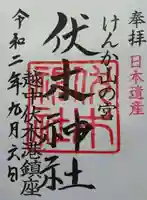 奉拝
日本遺産
けんか山の宮
伏木神社
越中伏木港鎮座
令和二年九月六日